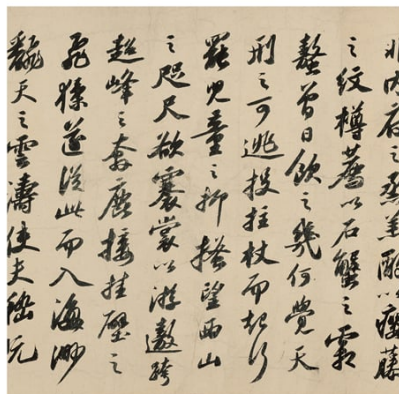 非内府之烝羔酌以癭藤
之紋樽薦以石蟹之霜
螯曾日飲之幾何覺天
刑之可逃投拄杖而起行
罷兒童之抑搔望西山
之咫尺欲褰裳以游遨跨
超峰之奔鹿接挂壁之
飛猱遂從此而入海渺
飜天之雲濤使夫嵇阮